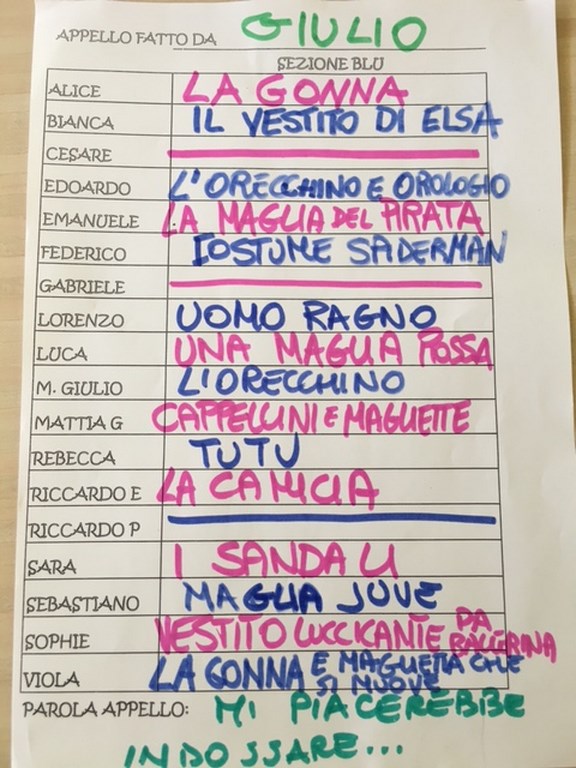 APPELLO FATTO DA GIULIO
SEZIONE BLU
ALICE LA GONNA
BIANCA IL VESTITO DI ELSA
CESARE
EDOARDO L'ORECCHINO E OROLOGIO
EMANUELE LA MAGLIA DEL PIRATA
FEDERICO COSTUME SPIDERMAN
GABRIELE
LORENZO UOMO RAGNO
LUCA UNA MAGLIA ROSSA
M. GIULIO L'ORECCHINO
MATTIA G CAPPELLINI E MAGLIETTE
REBECCA TUTU
RICCARDO E LA CAMICIA
RICCARDO P
SARA I SANDALI
SEBASTIANO MAGLIA JUVE
SOPHIE VESTITO LUCCICANTE DA BALLERINA
VIOLA LA GONNA E MAGLIETTA CHE
SI MUOVE
PAROLA APPELLO: MI PIACEREBBE
INDOSSARE...